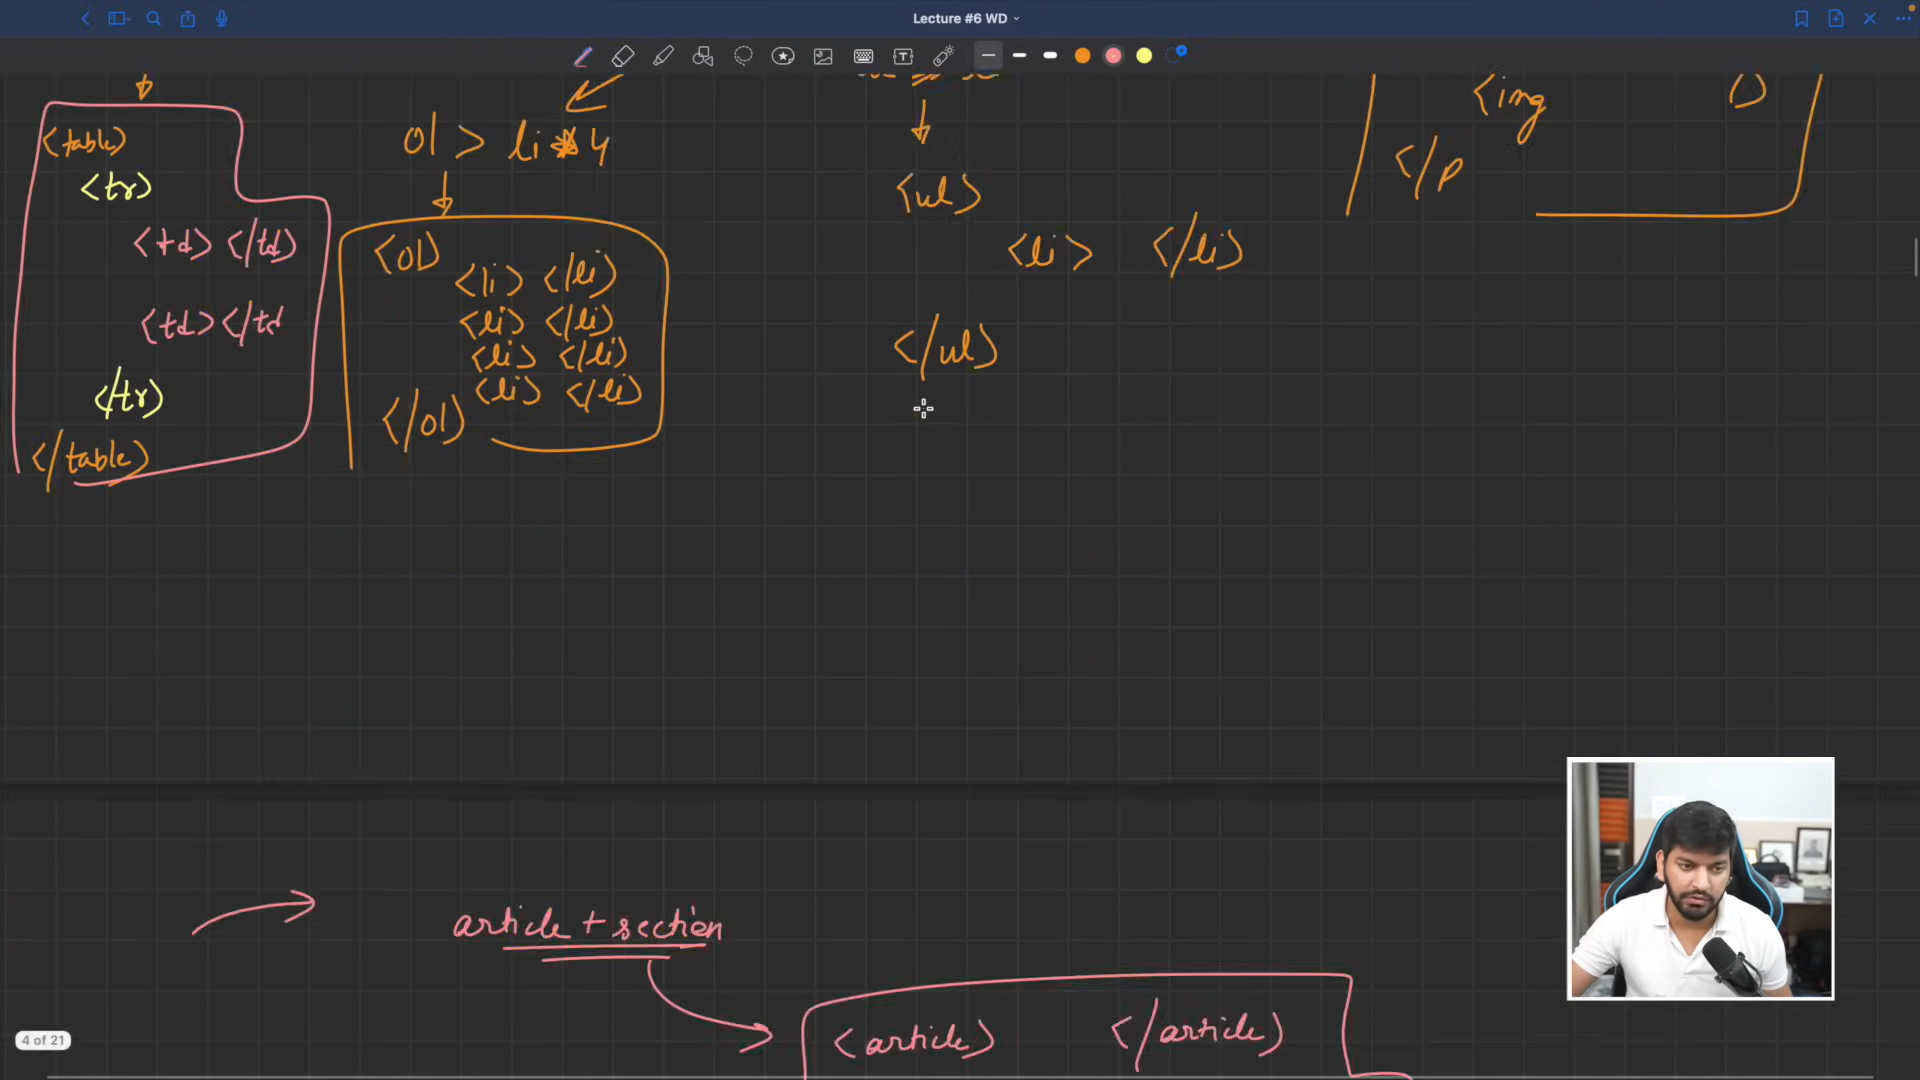 Lecture #6 WD
<table>
<tr>
<td> </td>
<td></td
</tr>
</table>
ol > li*4
<ol>
<li> </li>
<li> </li>
<li> </li>
<li> </li>
</ol>
<ul>
<li> </li>
</ul>
<img
</p
article + section
<article> </article>
4 of 21